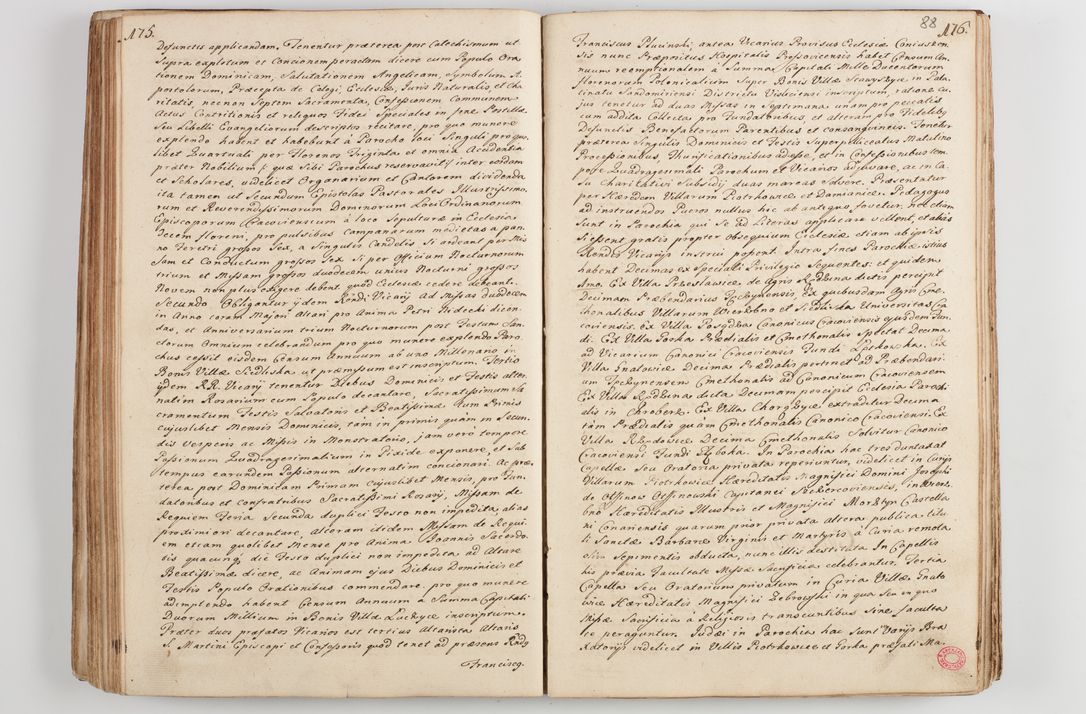 175.
Defunctis applicandam. Tenentur præterea post Catechismum ut
Supra expletum et Concionem peractam dicere cum Populo Ora
tionem Dominicam, Salutationem Angelicam, Symbolum A
postolorum, Præcepta de Calogi, Ecclesiæ, Juris Naturalis, et Cha
ritatis, necnon Septem Sacramenta, Confessionem Communem
Actus Contritionis et reliquos Fidei Speciales in fine Postillæ
Seu Libelli Evangeliorum descriptos recitare, pro quo munere
explendo habent et habebunt à Parocho loci Singuli pro quo
libet Quartuali per Florenos Triginta et omnia Accidentia
præter Nobilium quæ Sibi Parochus reservavit inter eosdem
et Scholares, videlicet Organarium et Cantorem dividenda
ita tamen ut Secundum Epistolas Pastorales Illustrissimo,
rum et Reverendissimorum Dominorum Loci Ordinariorum
Episcoporum Cracoviensium à loco Sepulturæ in Ecclesia
decem floreni, pro pulsibus campanarum medietas a pan,
no Feretri grossos Sex, a Singulis Candelis Si ardeant per Mis
sam et Conductum grossos Sex Si per Officium Nocturnorum
trium et Missam grossos duodecem unius Nocturni grossos
Novem non plus exigere debent quod Ecclesiæ cedere debeant.
Secundo Obligantur ijdem Rendi Vicarij ad Missas duodecem
in Anno coram Majori Altari pro Anima Petri Fedechi dicen,
das, et Anniversarium trium Nocturnorum post Festum San,
ctorum Omnium celebrandum pro quo munere explendo Paro,
chus cessit eisdem Censum Annuum ab uno Millenano in
Bonis Villæ Siedliska ut præmissum est inscriptum. Tertio
ijdem RR. Vicarij tenentur Diebus Dominicis et Festis alter,
natim Rosarium cum Populo decantare, Sacratissimum Sa
cramentum Festis Salvatoris et Beatissimæ tum Primis
cujuslibet Mensis Dominicis, tam in primis quam in Secun,
dis Vesperis ac Missis in Monstratorio, jam vero tempore
Passionum Quadragesimalium in Pixide exponere, et Sub
tempus earundem Passionum alternatim concionari. Ac præ,
terea post Dominicam Primam cujuslibet Mensis, pro Fun,
datoribus et confratribus Sacratissimi Rosarij, Missam de
Requiem Feria Secunda duplici Festo non impedita, alias
proximiori decantare, alteram itidem Missam de Requi
em etiam quolibet Mense pro Anima Joannis Sacerdo
tis quacunq; die Festo duplici non impedita ad Altare
Beatissimæ dicere, ac Animam ejus Diebus Dominicis et
Festis Populo Orationibus commendare. pro quo munere
adimplendo habent Censum Annuum a Summa Capitali
Duorum Millium in Bonis Villæ inscriptum.
Præter duos præfatos Vicarios est tertius Altarista Altaris
S. Martini Episcopi et Confessoris quod tenet ad præsens Rndg
Franciscg.
88
176.
Franciscus Plucinski, antea Vicarius Provisus Ecclesiæ Coniusten
sis nunc Præpositus Hospitalis Prossovicensis habet Censum An
nuum reemptionalem à Summa Capitali Mille Ducentorum
florenorum Polonicalium Super Bonis Villæ in Pala
tinatu Sandomiriensi Districtu Visliciensi inscriptum, ratione cu
jus tenetur ad duas Missas in Septimana, unam pro peccatis
cum addita Collecta pro Fundatoribus, et alteram pro Fidelibg
Defunctis Benefactorum Parentibus et consanguineis. Tenetur
præterea Singulis Dominicis et Festis Superpelliceatus Matutino
Processionibus, Thurificationibus adesse, et in Confessionibus tem,
pore Quadragesimali Parochum et Vicarios adjuvare, ac in ca,
su Charitativi Subsidij duas marcas Solvere. Præsentatur
per Hæredem Villarum Piotrkowice et Damianice. Pedagogus
ad instruendos Pueros nullus hic ab antiquo, fovetur, nec etiam
Sunt in Parochia qui Se ad Literas applicare vellent, et alias
Si essent gratis propter obsequium Ecclesiæ etiam ab ipsis
Rendis Vicarijs instrui possent. Intra fines Parochiæ istius
habent Decimas ex Speciali Privilegio Sequentes: et quidem
Amo. Ex Villa Przesławice de Agris dictis percipit
Decimam Præbendarius, Ex quibusdam Agris Cme,
thonalibus Villarum Wierzbno et Siedliska Universitas Cra
coviensis. ex Villa Canonicus Cracoviensis ejusdem Fun,
di. Ex Villa Gorka Prædialis et Cmethonalis Spectat Decima
ad Vicarium Canonici Cracoviensis Fundi. Ex
Villa Gnatowice Decima Prædialis pertinet ad Præbendari,
um Cmethonalis ad Canonicum Cracoviensem
Ex Villa dicta Decimam percipit Ecclesia Parochi
alis in Chroberz. Ex Villa extraditur Decima
tam Prædialis quam Cmethonalis Canonico Cracoviensi. Ex
Villa Decima Cmethonalis Solvitur Canonico
Cracoviensi Fundi. In Parochia hac tres duntaxat
Capellæ Seu Oratoria privata reperiuntur, videlicet in Curijs
Villarum Piotrkowice Hæreditatis Magnifici Domini Josephi
de Ossinow Ossinowski Capitanei, in Wierz,
bno Hæreditatis Illustris et Magnifici Castella
ni quarum prior privata altera publica titu
li Sanctæ Barbaræ Virginis et Martyris à Curia remota
olim Sepimentis obducta, nunc illis destituta In Capellis
his prævia Facultate Missæ Sacrificia celebrantur. Tertia
Capella Seu Oratorium privatum in Curia Villæ Gnato
wice Hæreditatis Magnifici Zebrowski in qua Seu in quo
Missæ Sacrificia à Religiosis transeuntibus Sine faculta
te peraguntur. Judæi in Parochia hac Sunt Varijs Bra
xatorijs videlicet in Villis Piotrkowice et Gorka præfati Ma,